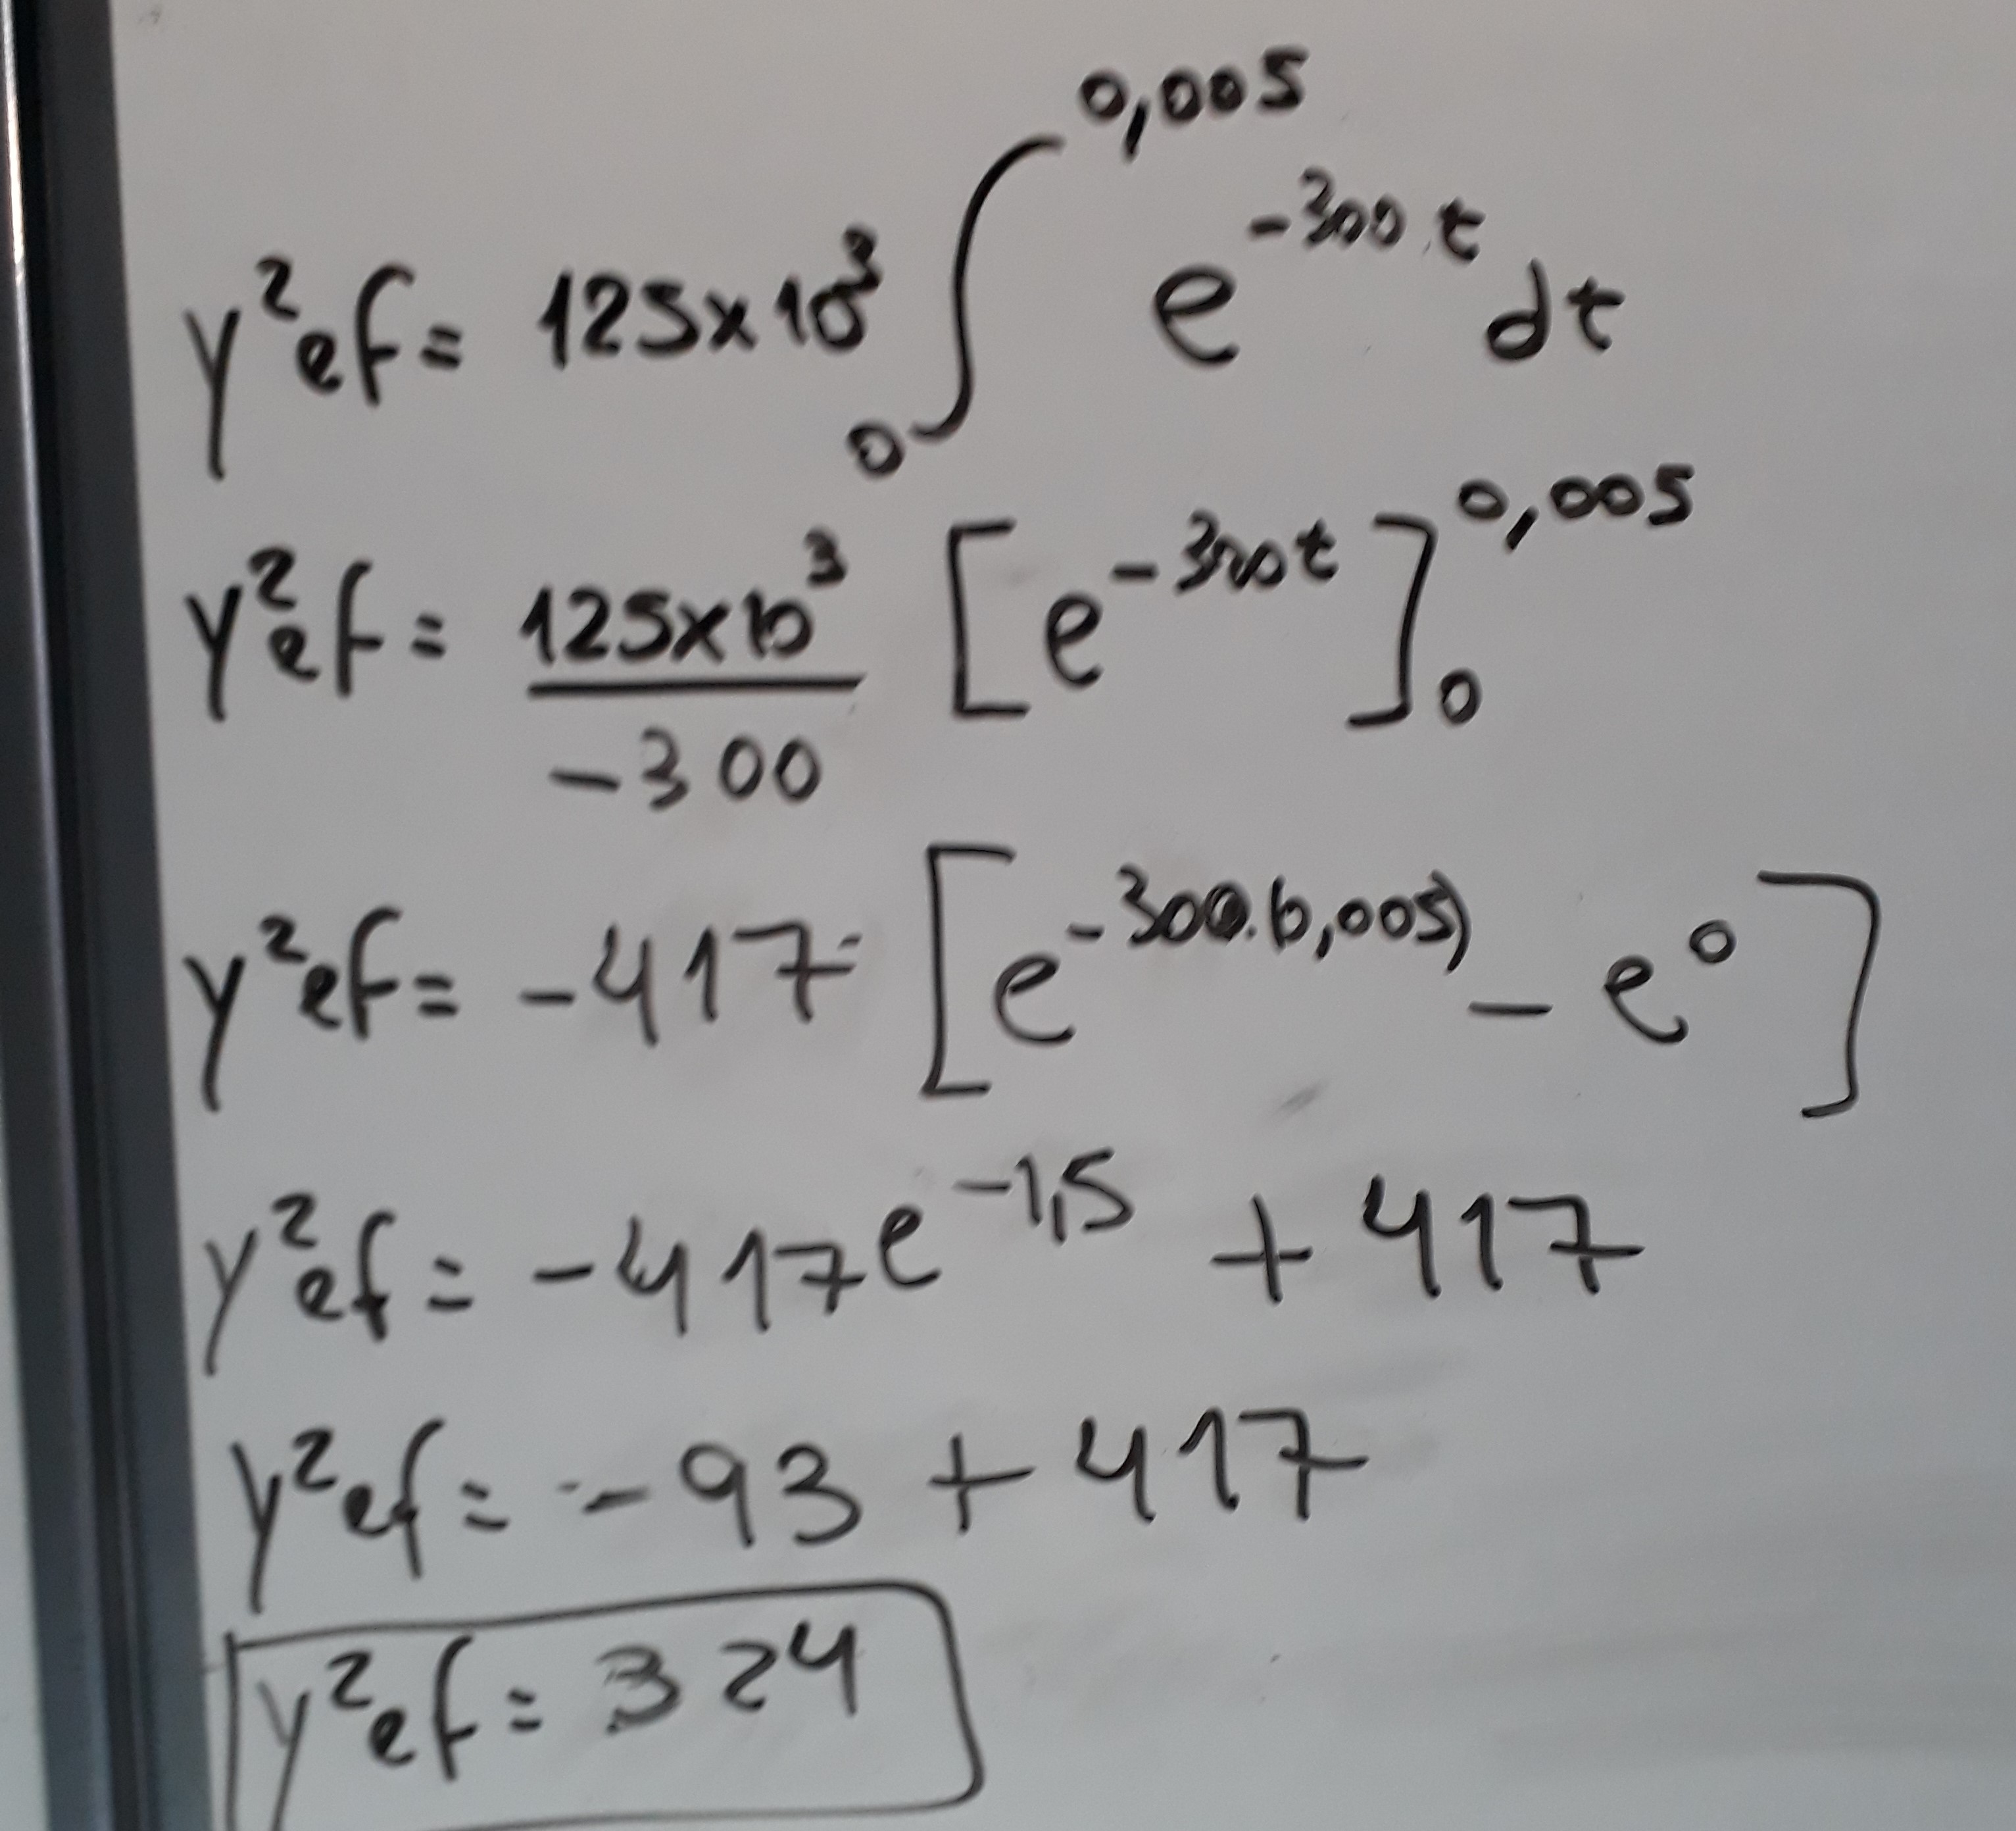 y²ef = 125x10³ ∫₀^0,005 e^-300t dt
y²ef = 125x10³/-300 [e^-300t]₀^0,005
y²ef = -417 [e^-300.(0,005) - e^0]
y²ef = -417e^-1,5 + 417
y²ef = -93 + 417
y²ef = 324